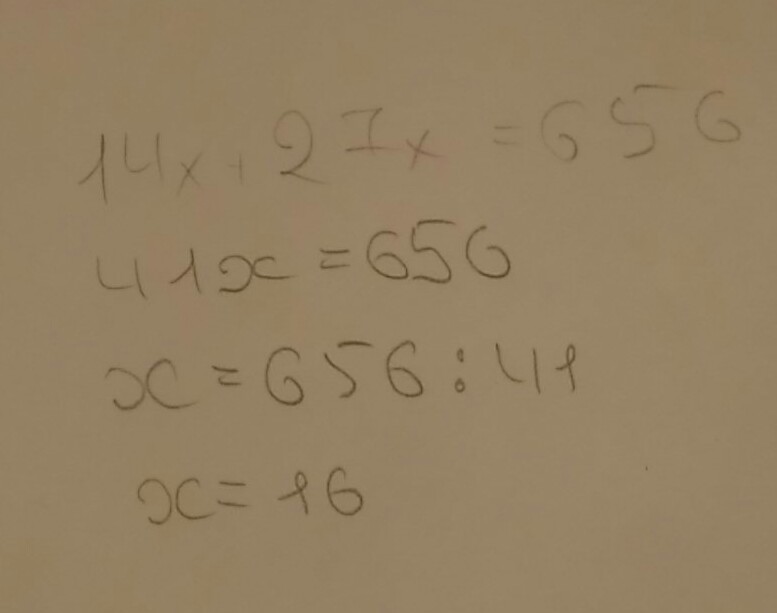 14x + 27x = 656
41x = 656
x = 656 : 41
x = 16